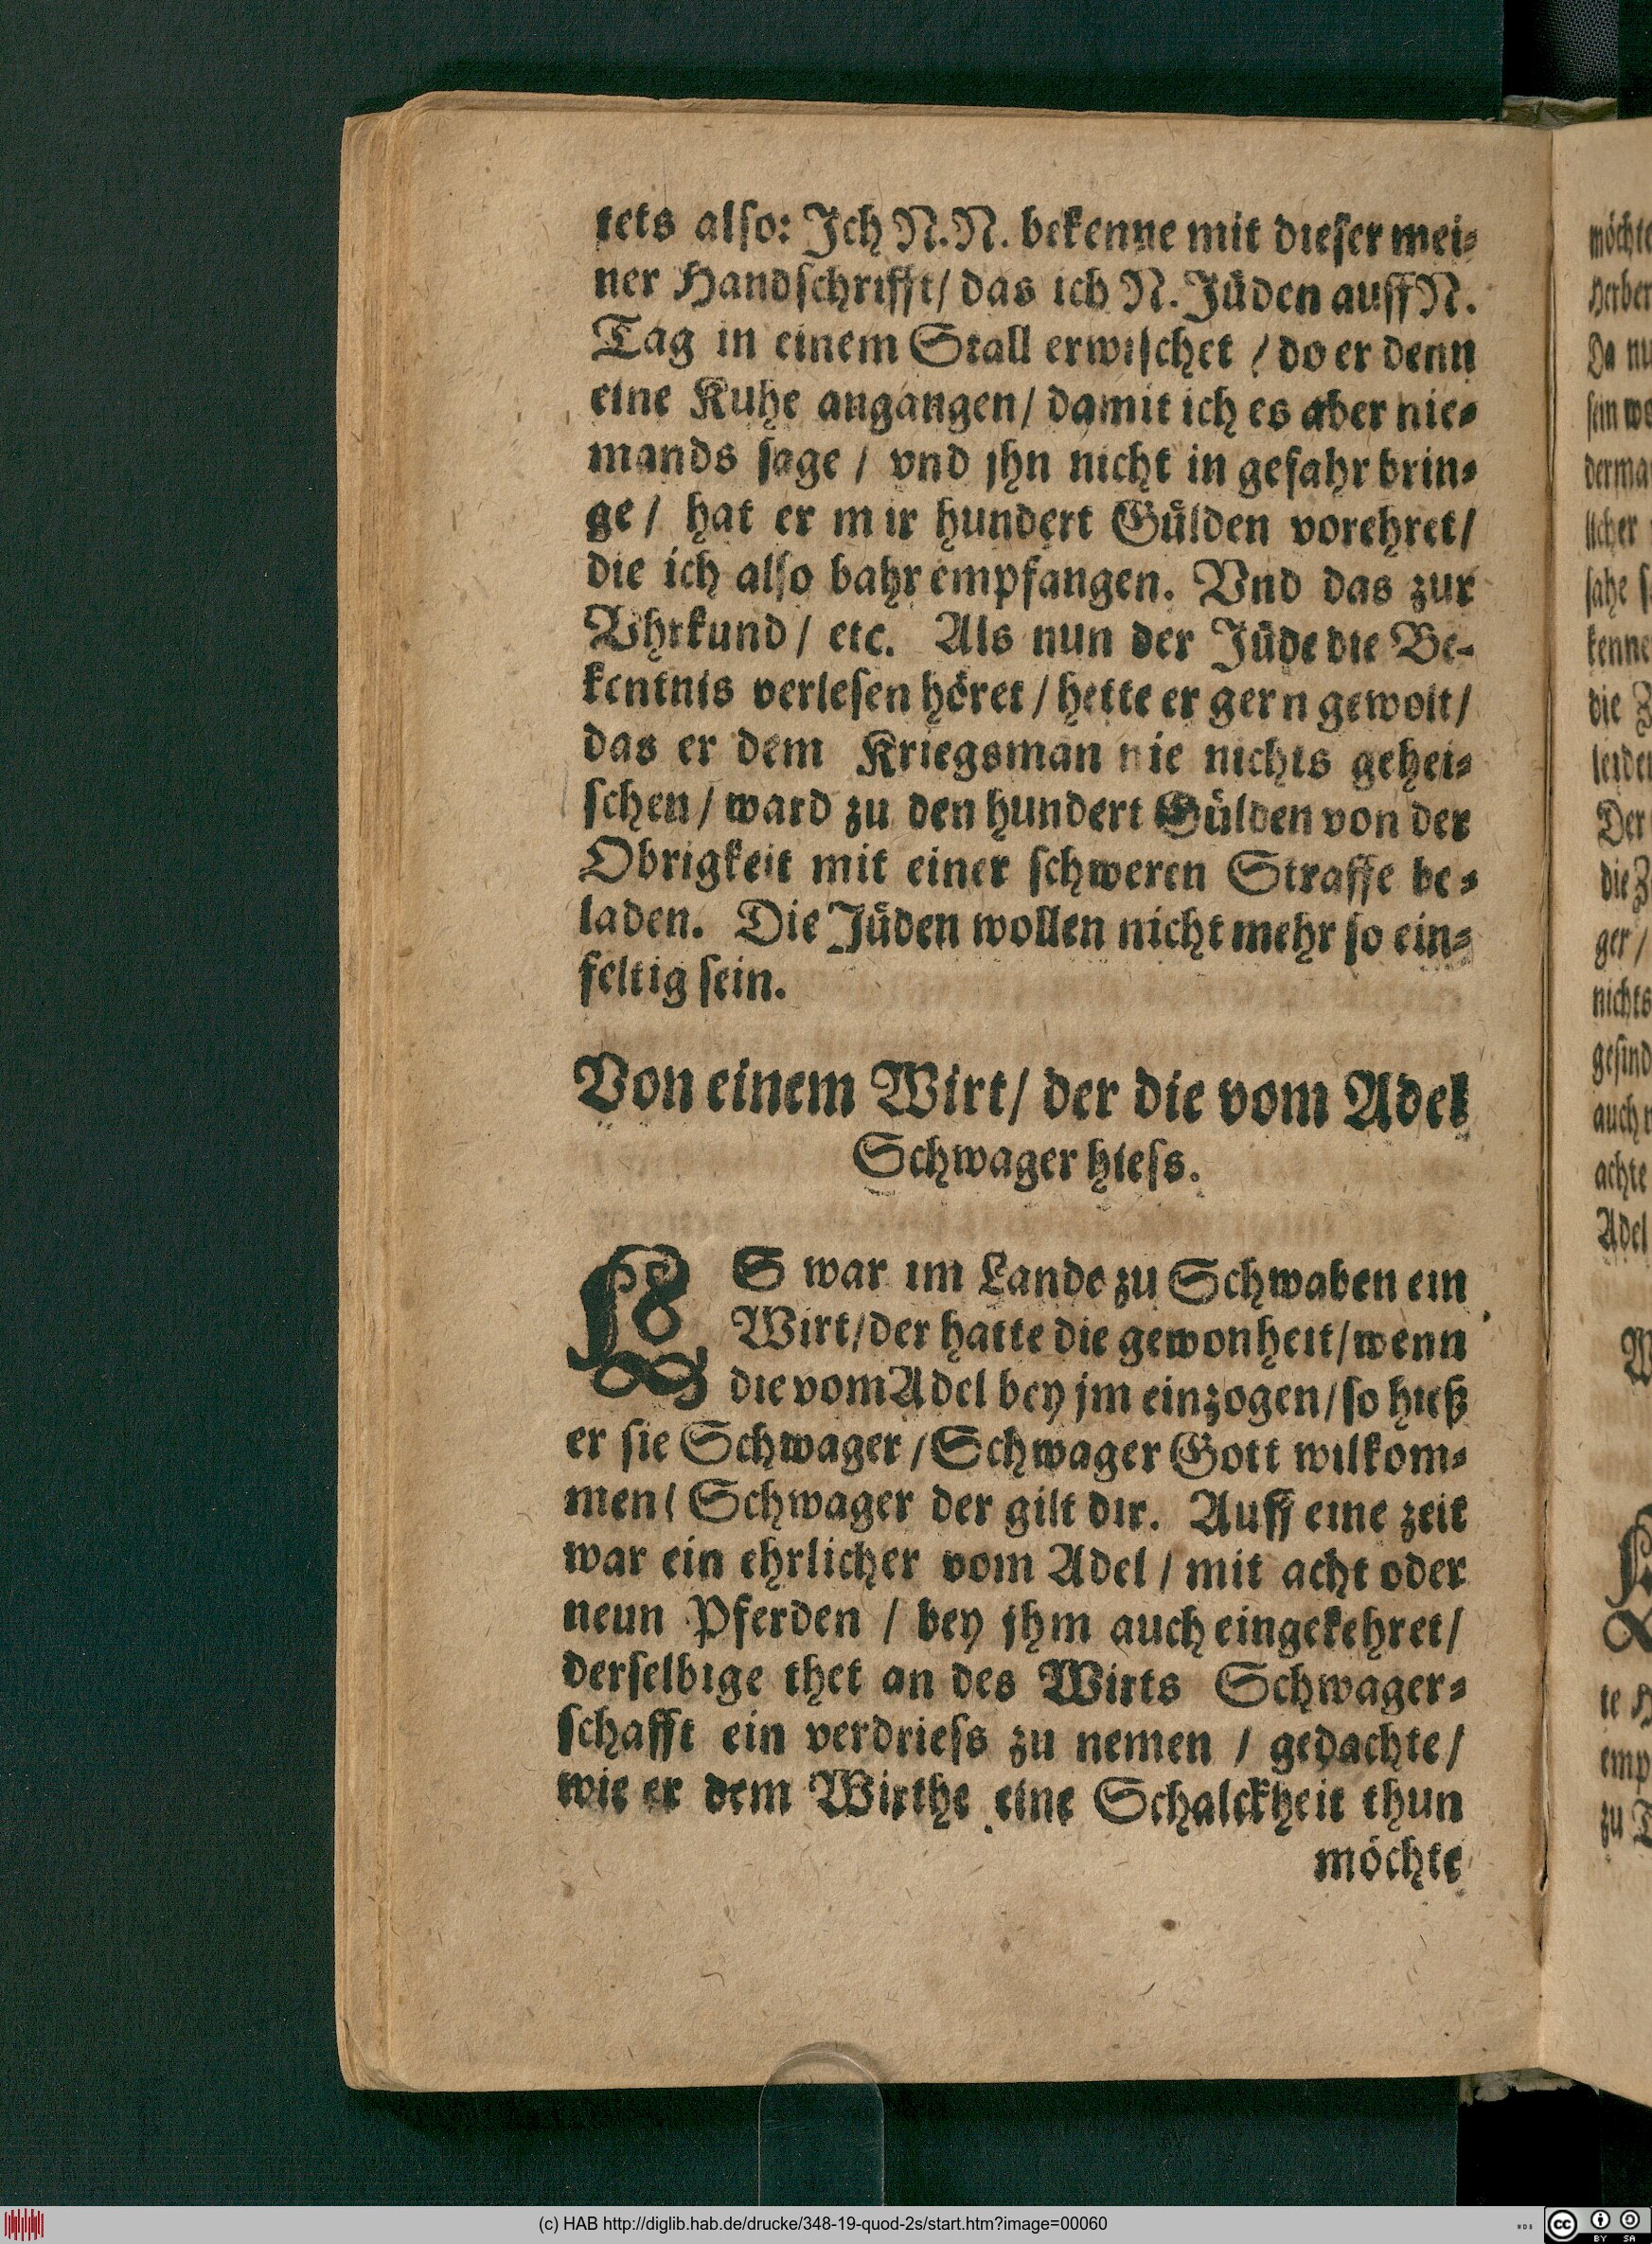 tets also: Ich N.N. bekenne mit dieser mei⸗
ner Handschrifft/ das ich N. Jüden auff N.
Tag in einem Stall erwischet / do er denn
eine Kuhe angangen/ damit ich es aber nie⸗
mands sage / vnd jhn nicht in gefahr brin⸗
ge / hat er mir hundert Gülden vorehret/
die ich also bahr empfangen. Vnd das zur
Vhrkund/ etc. Als nun der Jüde die Be-
kentnis verlesen höret / hette er gern gewolt/
das er dem Kriegsman nie nichts gehei⸗
schen / ward zu den hundert Gülden von der
Obrigkeit mit einer schweren Straffe be⸗
laden. Die Jüden wollen nicht mehr so ein⸗
feltig sein.
Von einem Wirt/ der die vom Adel
Schwager hiess.
ES war im Lande zu Schwaben ein
Wirt/der hatte die gewonheit/wenn
die vom Adel bey jm einzogen/so hieß
er sie Schwager /Schwager Gott wilkom⸗
men/ Schwager der gilt dir. Auff eine zeit
war ein ehrlicher vom Adel / mit acht oder
neun Pferden / bey jhm auch eingekehret/
derselbige thet an des Wirts Schwager⸗
schafft ein verdriess zu nemen / gedachte/
wie er dem Wirthe eine Schalckheit thun
möchte
möchte
Da nu
kenne
die Z
Der
die Z
ger /
nichts
gesind
achte
Adel
te H
emp
(c) HAB http://diglib.hab.de/drucke/348-19-quod-2s/start.htm?image=00060
cc BY SA